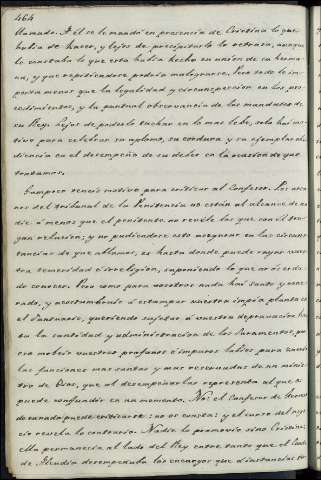 464
llamado. A él se le mandó en presencia de Cristina lo que
habia de hacer, y lejos de precipitarlo lo retrasó, aunque
le constaba lo que esta habia hecho en union de su herma-
na, y que repitiendose podria malograrse, pero todo le im-
porta menos que la legalidad y circunspeccion en los pro-
cedimientos, y la puntual observancia de los mandatos de
su Rey: lejos de poderlo tachar en lo mas leve, solo hai mo-
tivo para celebrar su aplomo, su cordura y su ejemplar obe-
diencia en el desempeño de su deber en la ocasion de que
tratamos.
Tampoco teneis motivo para criticar al Confesor. Los asun-
tos del tribunal de la Penitencia no están al alcance de na-
die á menos que el penitente no revele los que con él ten-
gan relacion; y no pudiendose esto asegurar en las circuns-
tancias de que hablamos, es hasta donde puede rayar vues-
tra temeridad é irreligion, suponiendo lo que no os es da-
do conocer. Pero como para vosotros nada hai santo y vene-
rado, y acostumbrais á estampar vuestra impia planta en
el Santuario, queriendo sujetar á vuestra depravacion has-
ta la santidad y administracion de los Sacramentos,
era moveis vuestros profanos é impuros labios para
las funciones mas santas y mas reservadas de un minis-
tro de Dios, que al desempeñarlas representa al que os
puede confundir en un momento. No: el Confesor de
nada puede criticarse: no os consta: y el curso del nego-
cio revela lo contrario. Nadie lo promovió sino Cristina:
ella permanecia al lado del Rey entre tanto que el Conde
de Alcudia desempeñaba los encargos que